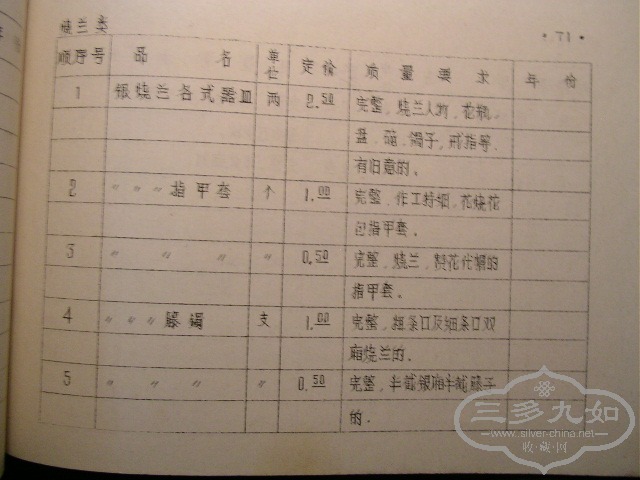 烧兰类 · 71 ·
顺序号 品 名 单位 定价 质量要求 年份
1 银烧兰各式器皿 两 2.50 完整，烧兰人物，花瓶，
盘，碗，镯子，戒指等，
有旧意的。
2 〃 〃 〃 指甲套 个 1.00 完整，作工特细，花烧花
包指甲套。
3 〃 〃 〃 〃 0.50 完整，烧兰，錾花代帽的
指甲套。
4 〃 〃 〃 藤镯 支 1.00 完整，粗条口及细条口双
厢烧兰的。
5 〃 〃 〃 〃 0.50 完整，半截银厢半截藤子
的。
三多九如
www.silver-china.net
收·藏·网